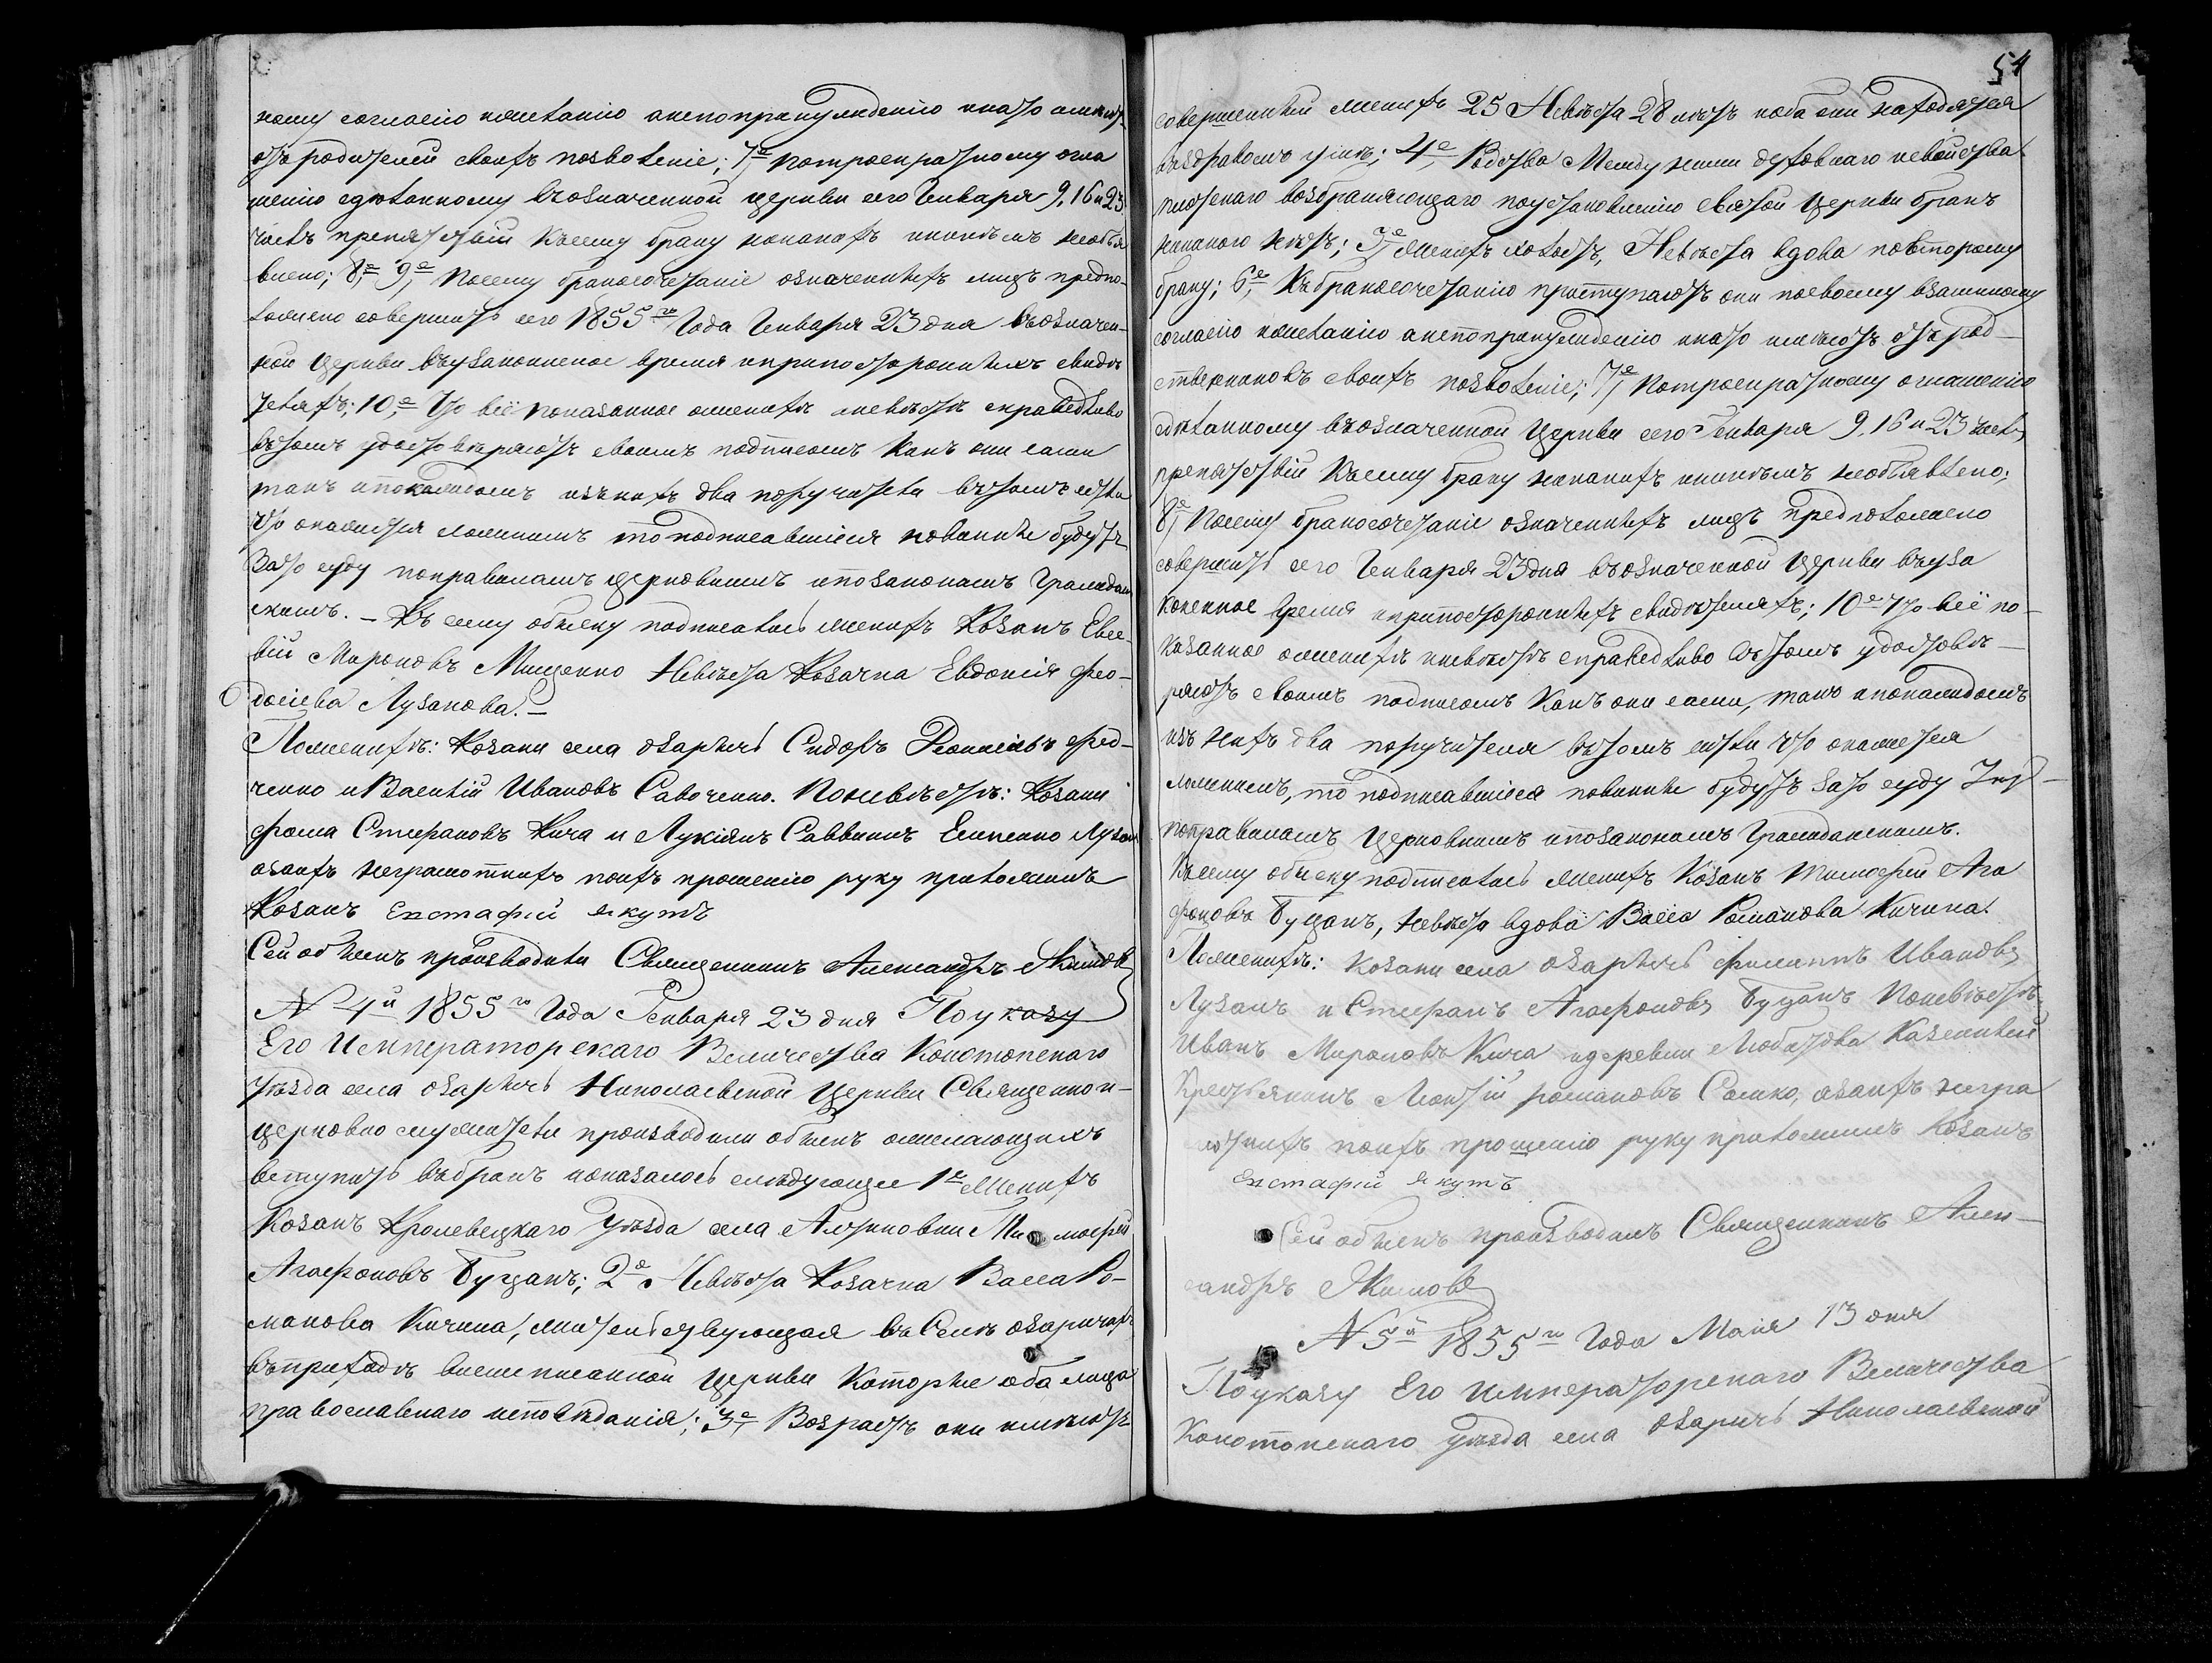 ному согласію ижеланію анепопринужденію иназо имѣютъ
отъ родителей своихъ позволеніе; 7е, Потроекратному огла
шенію сдѣланному въозначенной церкви сего Генваря 9, 16 и 23
числъ препятствій къ сему браку никакихъ иникѣмъ необъя
влено; 8е, 9е, Посему бракосочетаніе означенныхъ лицъ предпо-
ложено совершить сего 1855го Года Генваря 23 дня въозначен-
ной церкви въузаконенное время ипри постороннихъ свидѣ
теляхъ; 10,е Что всё показанное оженихѣ иневѣстѣ справедливо
вътомъ удостовѣряютъ своимъ подписомъ Какъ они сами
такъ ипокаждомъ изънихъ два поручителя вътомъ если
что окажется ложнымъ то подписавшіеся повинны будутъ
Зато суду поправиламъ церковнымъ ипозаконамъ Граждан
скимъ. – Къ сему обыску подписались женихъ Козакъ Евсе-
вій Мироновъ Мищенко Невѣста Козачка Евдокія Фео-
досіева Лузанова. –
Поженихѣ: Козаки села Озарычь Сидоръ Федо-
ченко и Василій Ивановъ Савоченко. Поневѣстѣ: Козаки
Фома Стефановъ Кича и Лукіянъ Саввинъ Емпенко Лузан
азанхъ неграмотныхъ поихъ прошенію руку приложилъ
Козакъ Евстафій Якутъ
Сей обыскъ производили Священникъ Александръ Якимовъ
N 4й 1855го Года Генваря 23 дня Поуказу
Его Императорскаго Величества Конотопскаго
Уѣзда села Озарычь Николаевской Церкви Священно и-
церковно служители производили обыскъ ожелающихъ
вступить въбракъ ипоказалось слѣдующее 1е Женихъ
Козакъ Кролевецкаго Уѣзда села Алтыновки Тимофей
Агафоновъ Буцанъ; 2е Невѣста Козачка Васса Ро-
манова Кичина, жительствующая въ Селѣ Озаричахъ
въприходѣ вышеписанной Церкви Которые оба лица
православнаго исповѣданія; 3е Возрастъ они имѣютъ
54
совершенный женихъ 25 Невѣста 28 лѣтъ иоба они находятся
въздравомъ умѣ; 4е, Родства Между ними духовнаго исвойства
плотскаго возбраняющаго поустановленію святой Церкви бракъ
никакого нѣтъ; 5е Женихъ холостъ, Невѣста вдова повторому
браку; 6е, Къбракосочетанію приступаютъ они посвоему взаимному
согласію ижеланію анепопринужденію инато имѣютъ отъ род-
ственниковъ своихъ позволеніе; 7е, Потроекратному оглашенію
сдѣланному въозначенной Церкви сего Генваря 9, 16 и 23 числъ
препятствій Къ сему браку никакихъ иникѣмъ необъявлено;
8е, Посему бракосочетаніе означенныхъ лицъ предположено
совершить сего Генваря 23 дня въозначенной Церкви въуза
коненное время ипри постороннихъ свидѣтеляхъ; 10е Что всё по-
казанное оженихѣ иневѣстѣ справедливо вътомъ удостовѣ-
ряютъ своимъ подписомъ Какъ они сами, такъ ипокаждомъ
изъ нихъ два поручителя вътомъ если что окажется
ложнымъ, то подписавшіеся повинны будутъ зато суду
поправиламъ Церковнымъ ипозаконамъ Гражданскимъ.
Къ сему обыску подписались женихъ Козакъ Тимофей Ага
фоновъ Буцанъ, невѣста вдова Васса Романова Кичина.
Поженихѣ: Козаки села Озарычь Филиппъ Ивановъ
Лузанъ и Стефанъ Агафоновъ Буцанъ Поневѣстѣ
Иванъ Мироновъ Кича идеревни Любатова Казенный
Крестьянинъ Леонтій романовъ Сомко, азаихъ негра
мотныхъ поихъ прошенію руку приложилъ Козакъ
Евстафій Якутъ
Сей обыскъ производилъ Священникъ Алек-
сандръ Якимовъ
N 5й 1855го Года Маія 13 дня
Поуказу Его Императорскаго Величества
Конотопскаго Уѣзда села Озаричь Николаевской